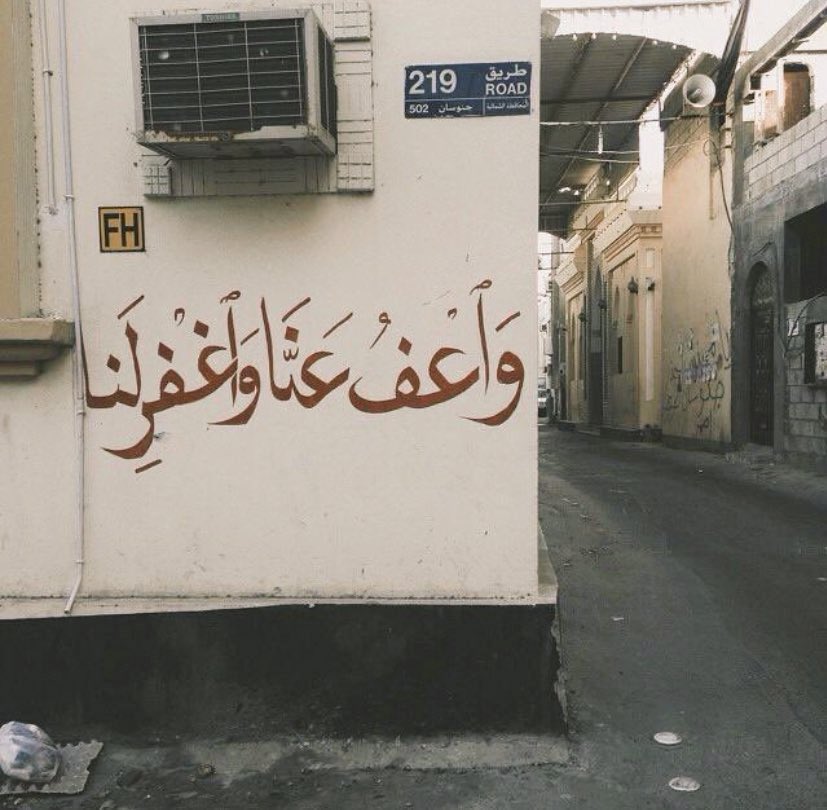 TOSHIBA
219 طريق
ROAD
502 جنوسان المحافظة الشمالية
FH
وَٱعْفُ عَنَّا وَٱغْفِرْ لَنَا